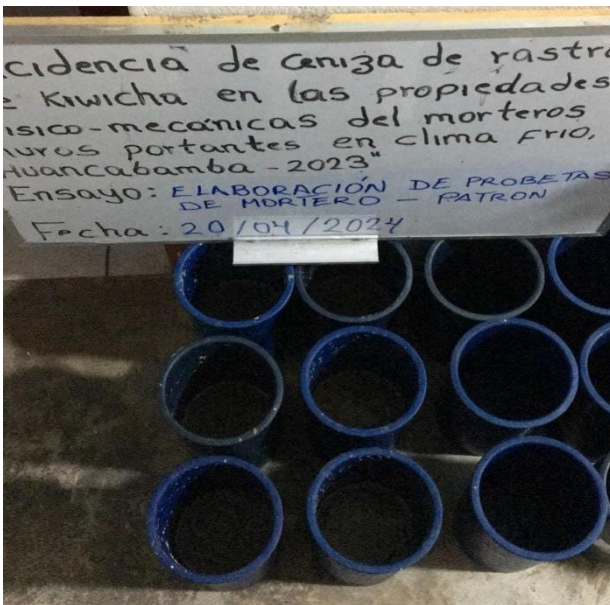 cidencia de ceniza de rastr
e Kiwicha en las propiedades
isico-mecánicas del morteros
uros portantes en clima FRIO,
Huancabamba - 2023"
Ensayo: ELABORACIÓN DE PROBETAS
DE MORTERO - PATRON
Fecha: 20/04/2024